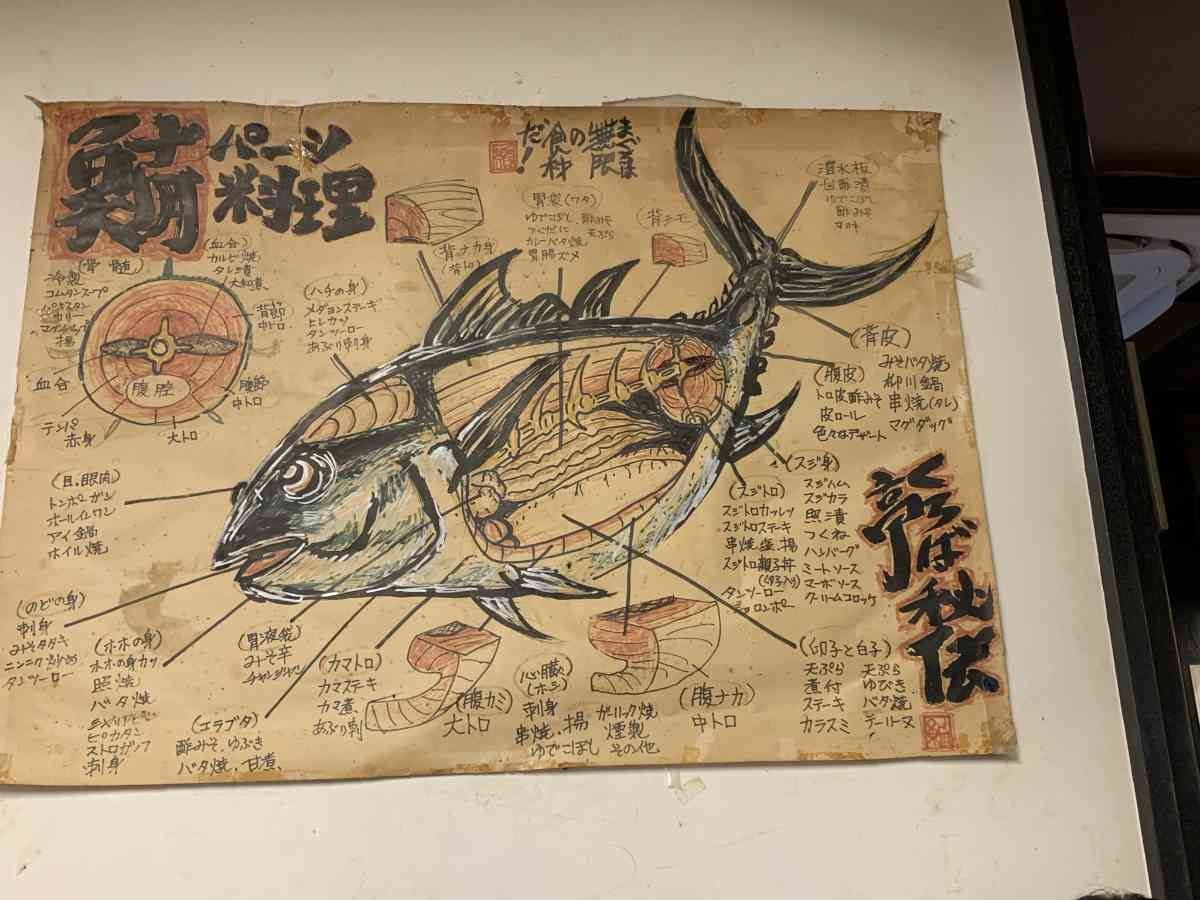 鮪
パーツ
料理
まぐろは
無限
の
食料
だ！
(骨髄)
冷製
コムタンスープ
ゼリー
揚
(血合)
カルビ焼
タレ漬
大和煮
背節
中トロ
腹節
中トロ
大トロ
腹腔
赤身
テンパ
血合
(ハチの身)
メダヨンステーキ
ヒレカツ
タンツーロー
あぶり刺身
(背ナカ身)
胃袋(ワタ)
ゆでこぼし 酢みそ
つくだに 天ぷら
カレーバタ焼
(背シモ)
潜水板
ゆでこぼし
酢みそ
(背皮)
みそバタ焼
柳川鍋
串焼(タレ)
マグダッグ
(腹皮)
トロ皮酢みそ
皮ロール
色々なデザート
(スジ身)
スジハム
スジカラ
照漬
つくね
ハンバーグ
ミートソース
マーボソース
クリームコロッケ
(スジトロ)
スジトロカツレツ
スジトロステーキ
串焼 塩 揚
スジトロ親子丼
(卵子入り)
タンツーロー
ショロンポー
(目.眼肉)
トンポーガン
ホールインワン
アイ鍋
ホイル焼
(のどの身)
刺身
みそタタキ
ニンニク炒め
タンツーロー
(ホホの身)
ホホの身カツ
照焼
バタ焼
ピカタン
ストロガノフ
刺身
(エラブタ)
酢みそ.ゆぶき
バタ焼.甘煮.
(胃液袋)
みそ辛
チャンジャン
(カマトロ)
カマステーキ
カマ煮
あぶり刺
(腹カミ)
大トロ
(心臓)
(ホシ)
刺身
串焼.揚
ゆでこぼし
ガーリック焼
燻製
その他
(腹ナカ)
中トロ
(卵子と白子)
天ぷら
煮付
ステーキ
カラスミ
天ぷら
ゆびき
バタ焼
テリーヌ
秘伝